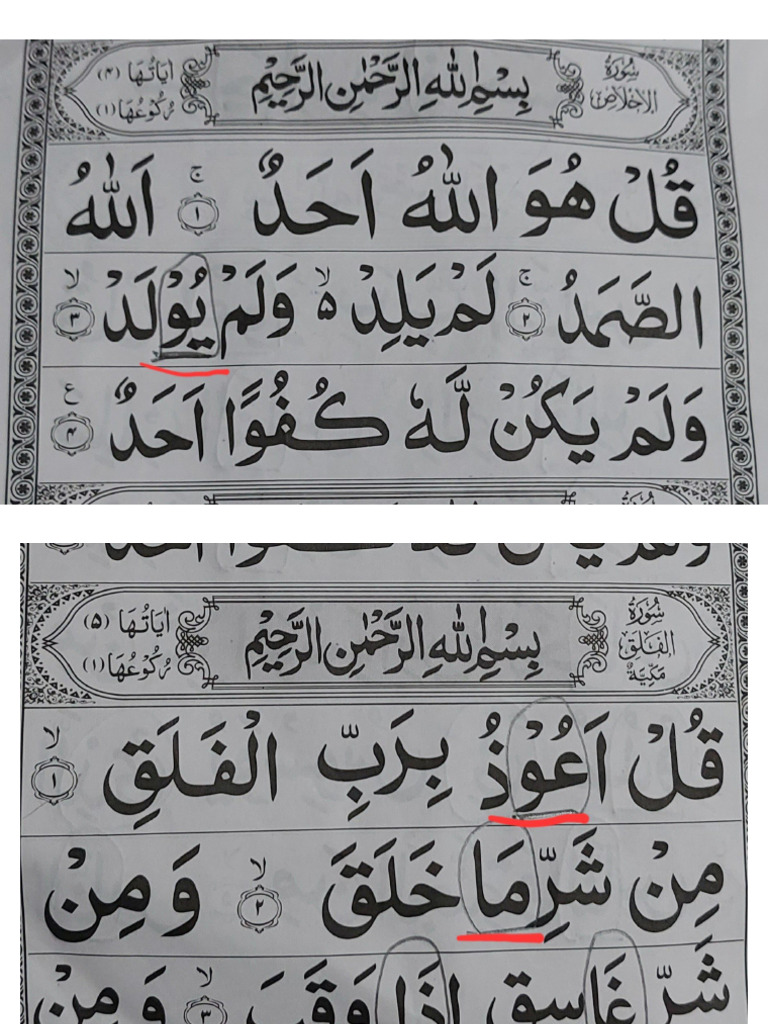 سُوْرَةُ الْاِخْلَاصِ بِسْمِ اللّٰهِ الرَّحْمٰنِ الرَّحِيْمِ اٰيَاتُهَا (۴) رُكُوْعُهَا (۱)
قُلْ هُوَ اللّٰهُ اَحَدٌ ۚ ﴿۱﴾ اَللّٰهُ
الصَّمَدُ ۚ ﴿۲﴾ لَمْ يَلِدْ ۙ۵ وَلَمْ يُوْلَدْ ۙ ﴿۳﴾
وَلَمْ يَكُنْ لَّهٗ كُفُوًا اَحَدٌ ع ﴿۴﴾
سُوْرَةُ الْفَلَقِ مَكِّيَّةٌ بِسْمِ اللّٰهِ الرَّحْمٰنِ الرَّحِيْمِ اٰيَاتُهَا (۵) رُكُوْعُهَا (۱)
قُلْ اَعُوْذُ بِرَبِّ الْفَلَقِ ۙ ﴿۱﴾
مِنْ شَرِّ مَا خَلَقَ ۙ ﴿۲﴾ وَمِنْ
شَرِّ غَاسِقٍ اِذَا وَقَبَ ۙ ﴿۳﴾ وَمِنْ